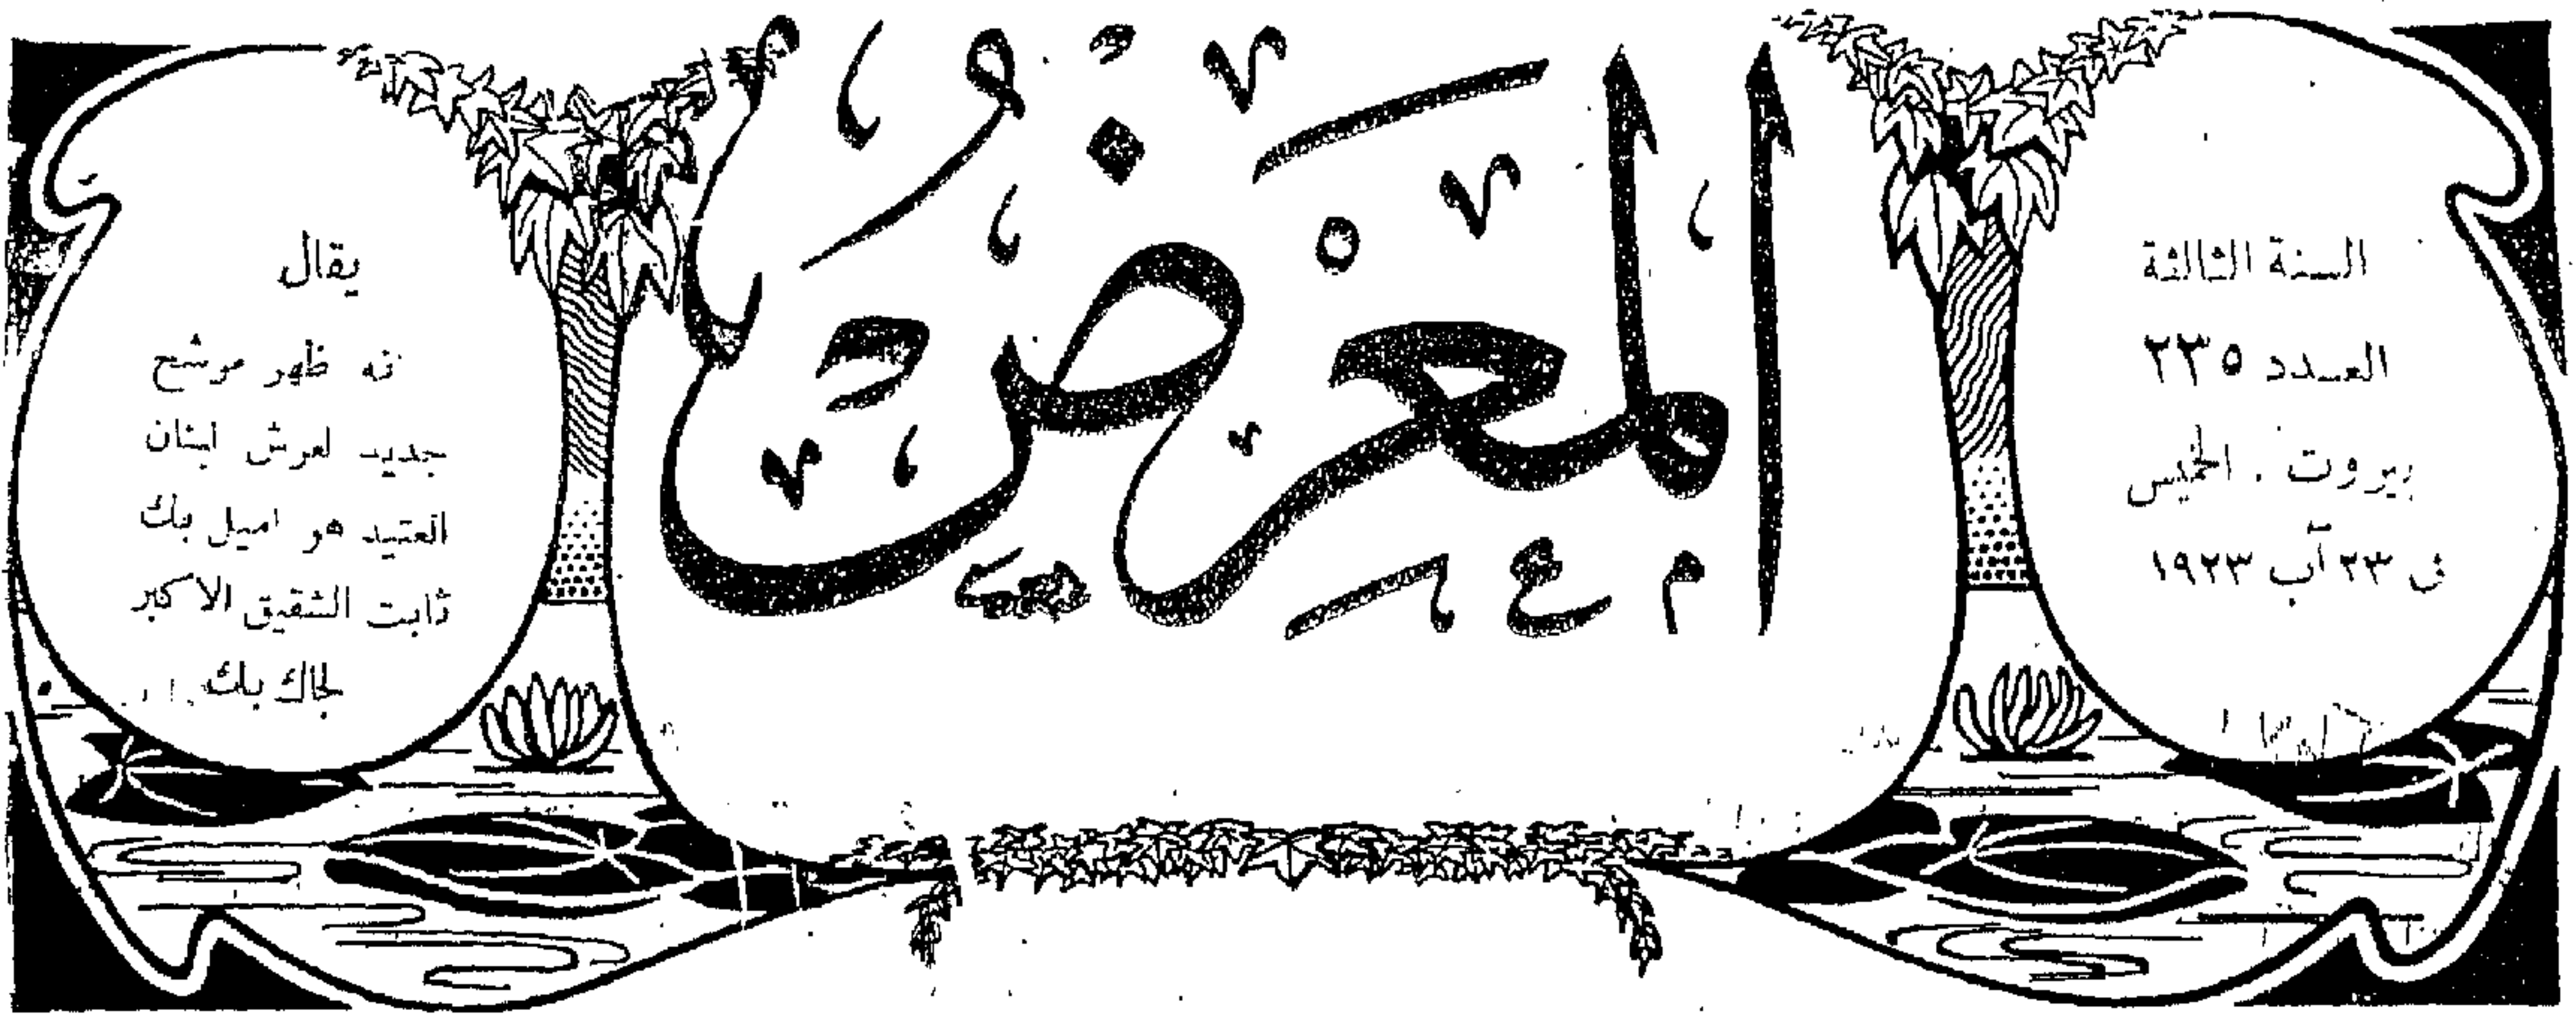 السنة الثالثة
العدد ٢٣٥
بيروت . الخميس
في ٢٣ آب ١٩٢٣
المعرض
يقال
انه ظهر مرشح
جديد لعرش لبنان
العتيد هو اميل بك
ثابت الشقيق الاكبر
لجاك بك